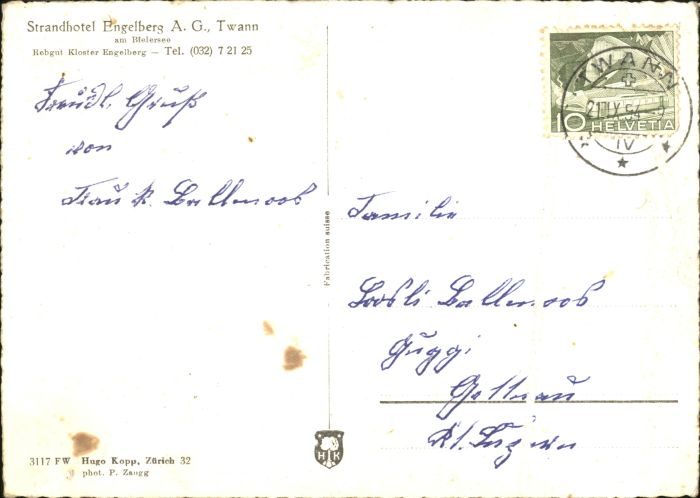 Strandhotel Engelberg A. G., Twann
am Bielersee
Rebgut Kloster Engelberg — Tel. (032) 7 21 25
Freudl. Gruß
von
Frau R. Ballmoos
Fabrication suisse
3117 FW Hugo Kopp, Zürich 32
phot. P. Zaugg
HK
TWANN
21.IX.54
IV
10 HELVETIA
Familie
Loosli Ballmoos
Guggi
Gettnau
Kt. Luzern